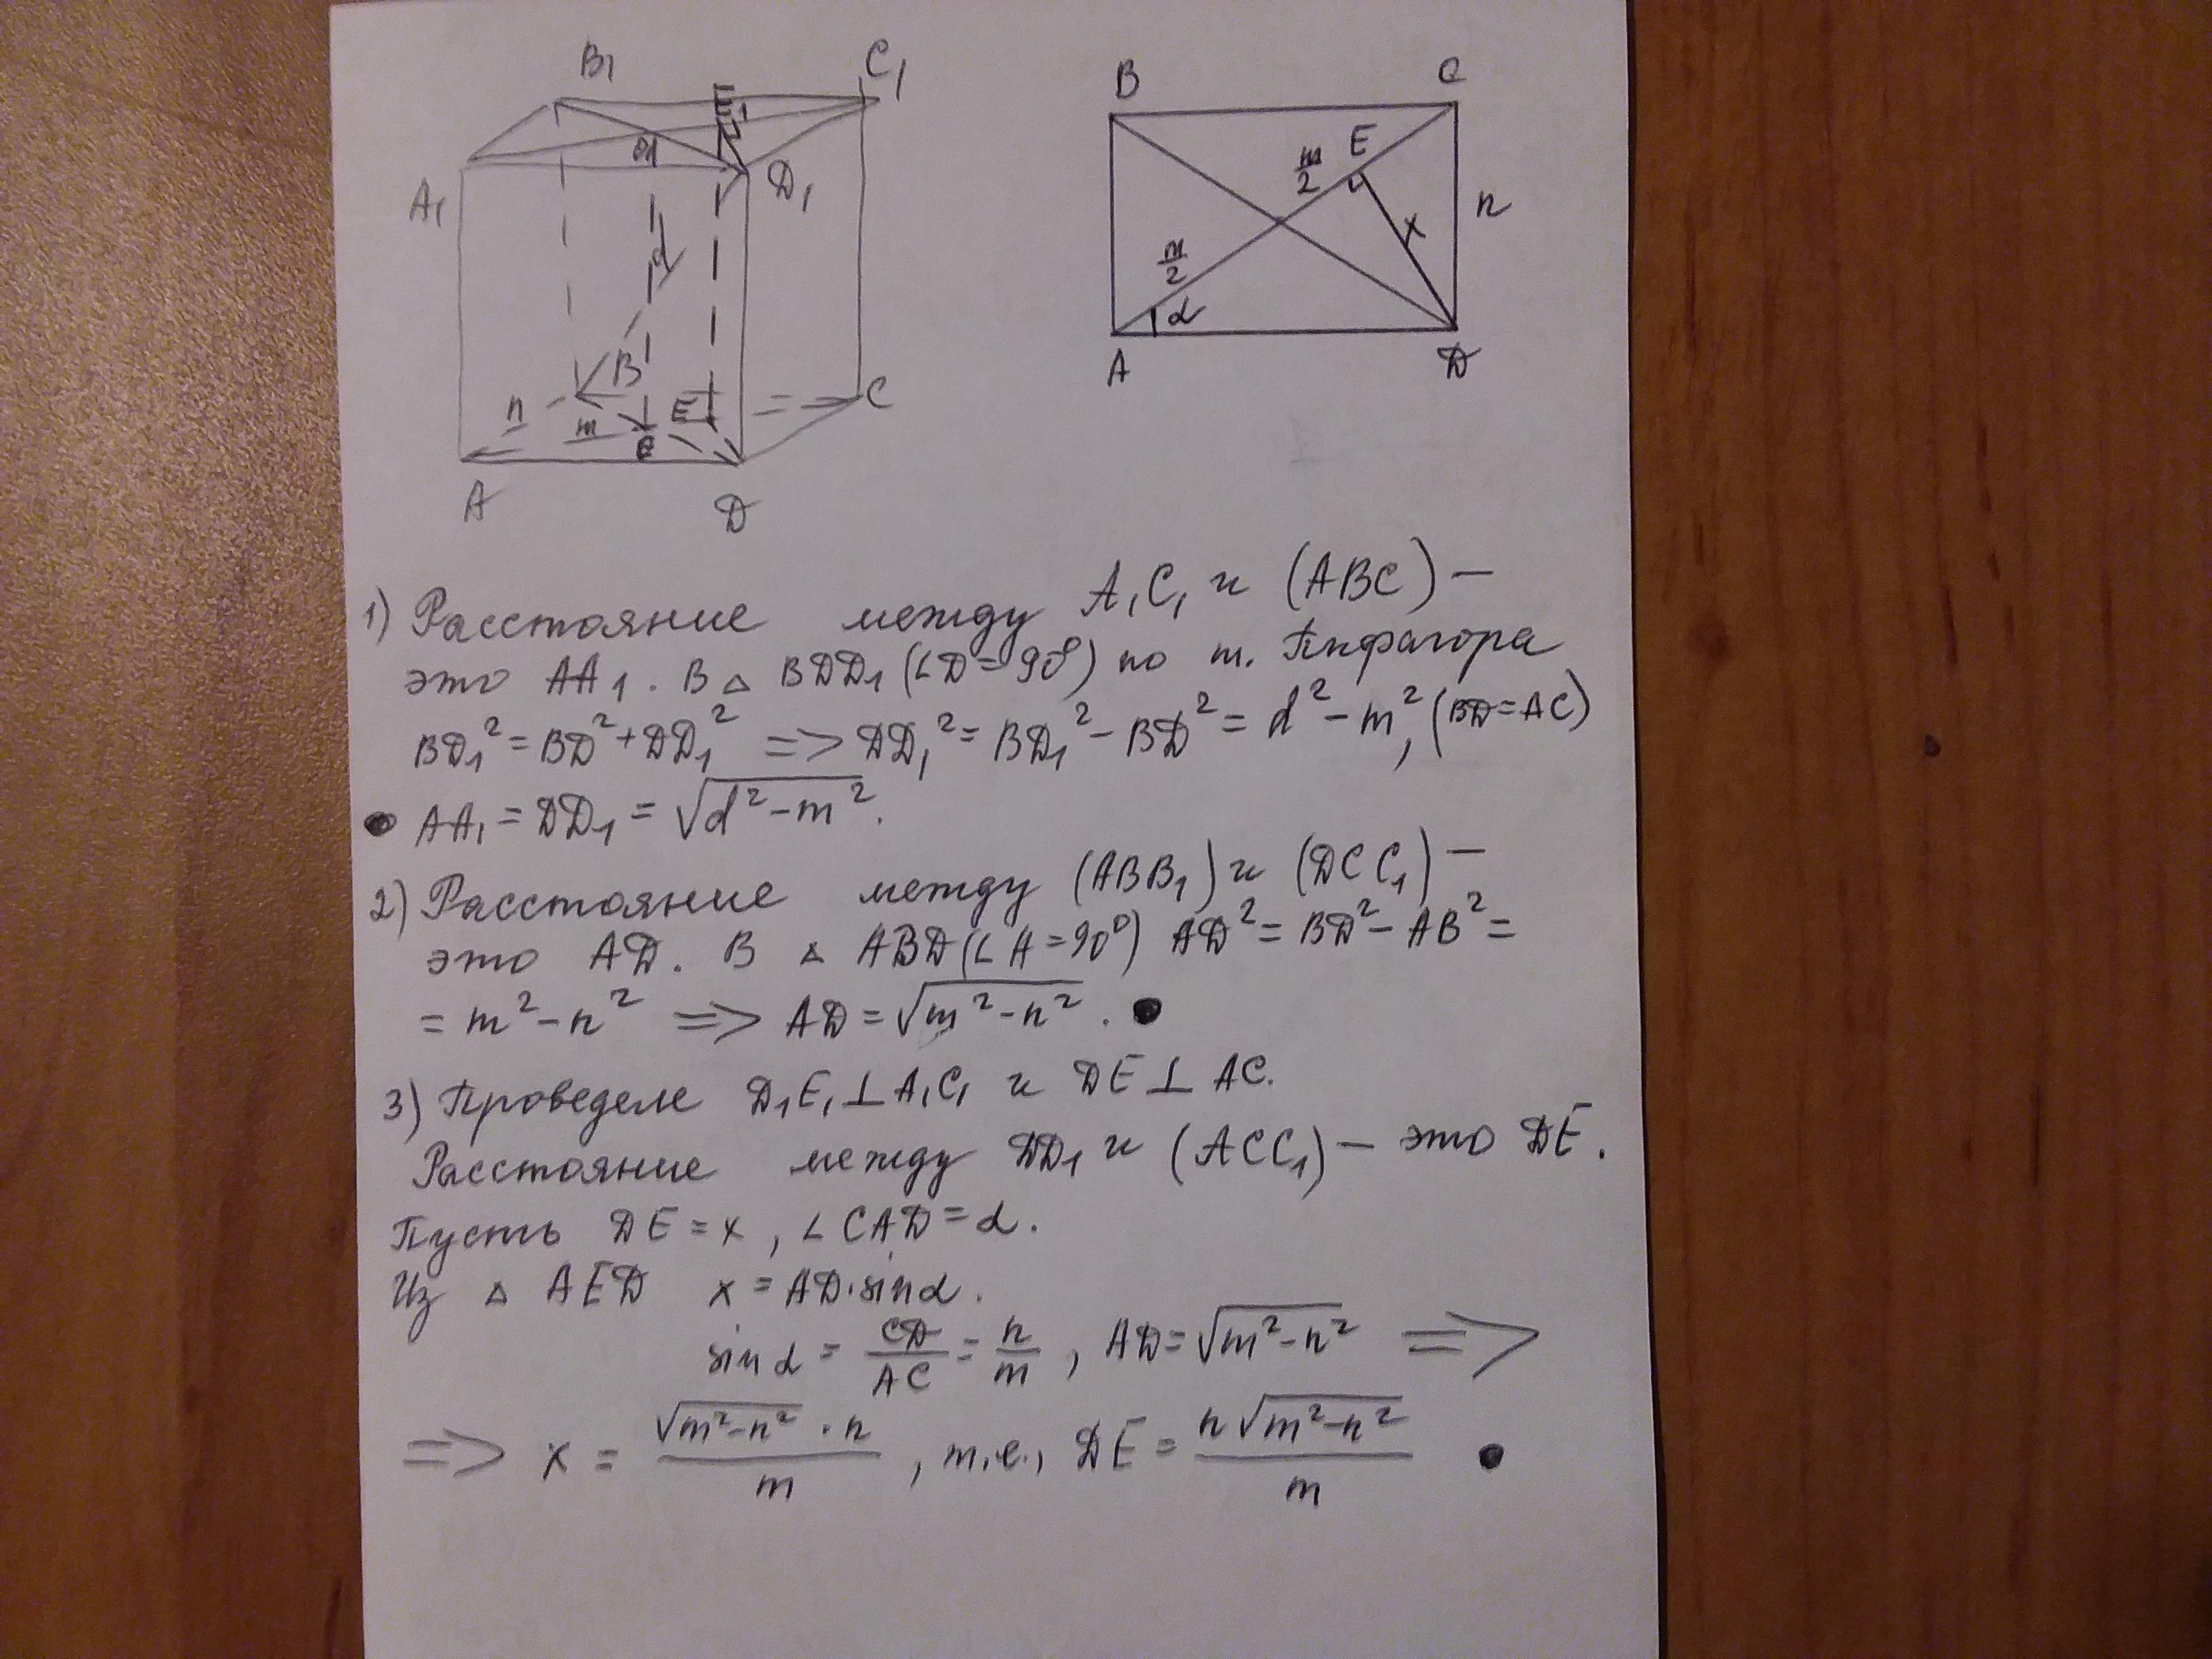 B₁ C₁
E₁
O₁
A₁ D₁
d
B
n m E C
A D
B C
E
m/2 n
x
m/2
α
A D
1) Расстояние между A₁C₁ и (ABC) —
это AA₁. В △ BDD₁ (∠D=90°) по т. Пифагора
BD₁² = BD² + DD₁² => DD₁² = BD₁² - BD² = d² - m², (BD=AC)
AA₁ = DD₁ = √(d² - m²).
2) Расстояние между (ABB₁) и (DCC₁) —
это AD. В △ ABD (∠A=90°) AD² = BD² - AB² =
= m² - n² => AD = √(m² - n²).
3) Проведем D₁E₁ ⊥ A₁C₁ и DE ⊥ AC.
Расстояние между DD₁ и (ACC₁) — это DE.
Пусть DE = x, ∠CAD = α.
Из △ AED x = AD·sinα.
sinα = CD/AC = n/m, AD = √(m² - n²) =>
=> x = √(m² - n²) · n / m, т.е., DE = n√(m² - n²) / m